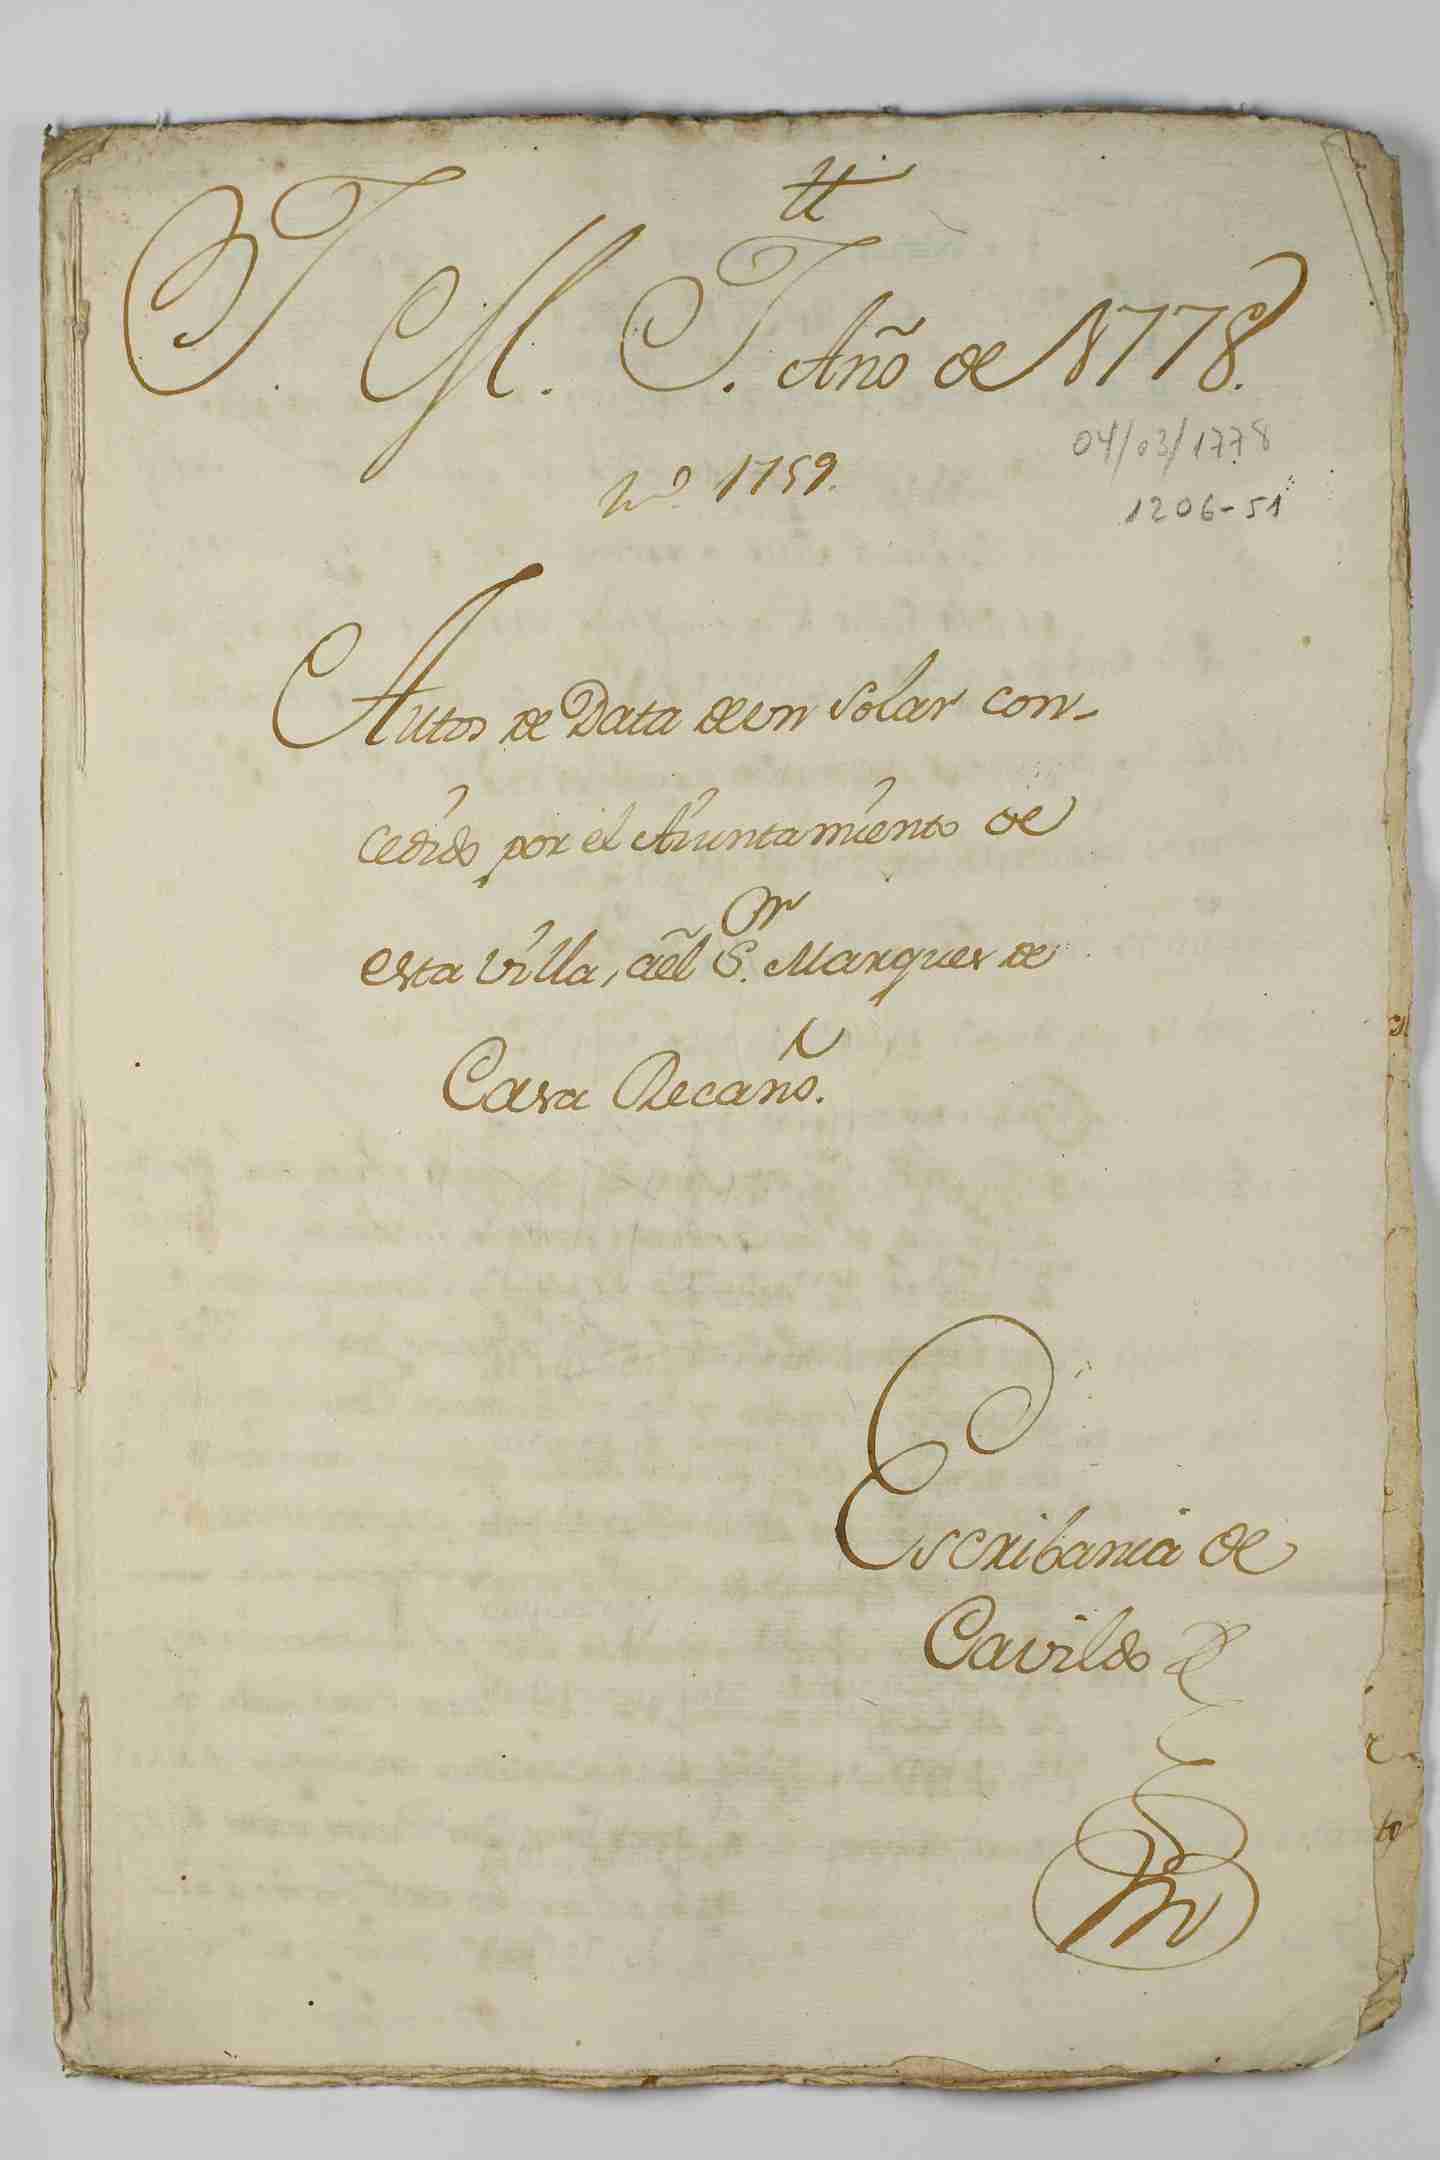 J. M. J. Año de 1778.
04/03/1778
Nº 1759.
1206-51
Autos de Data de vn Solar con-
cedido por el Aiuntamiento de
esta Villa, a el S.or Marques de
Casa Recaño.
Escribania de
Cavildo